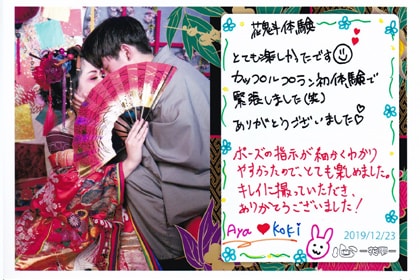 花魁体験
とても楽しかったです
カップルプラン初体験で
緊張しました(笑)
ありがとうございました♡
ポーズの指示が細かくわかり
やすかったので、とても楽しめました。
キレイに撮っていただき、
ありがとうございました!
Aya ♥ Koki
2019/12/23